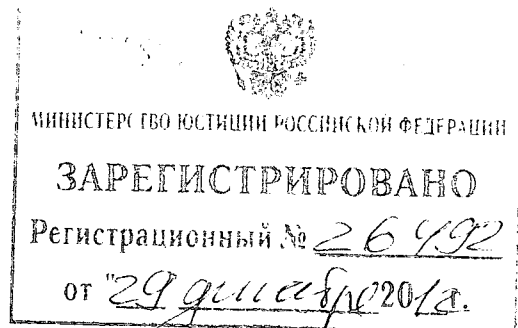 МИНИСТЕРСТВО ЮСТИЦИИ РОССИЙСКОЙ ФЕДЕРАЦИИ
ЗАРЕГИСТРИРОВАНО
Регистрационный № 26492
от "29 декабря 2012.